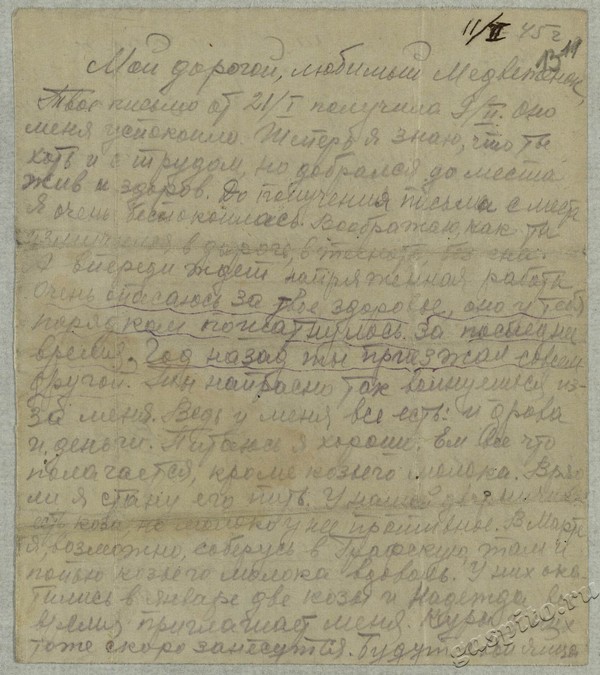 11/II 45 г
13 11
Мой дорогой, любимый Медвежонок,
Твое письмо от 21/I получила 9/II. Оно
меня успокоило. Теперь я знаю, что ты
хоть и с трудом, но добрался до места
жив и здоров. До получения письма с места
я очень беспокоилась. Воображаю, как ты
измучился в дороге, в тесноте, без сна.
А впереди ждет напряженная работа.
Очень опасаюсь за твое здоровье, оно у тебя
порядком пошатнулось за последнее
время. Год назад ты приезжал совсем
другой. Ты напрасно так волнуешься из-
за меня. Ведь у меня все есть: и дрова
и деньги. Питаюсь я хорошо. Ем все что
полагается, кроме козьего молока. Вряд
ли я стану его пить. У нашей
есть коза, но молоко у нее противное. В Марте
я, возможно, соберусь в Графскую, там и
попью козьего молока вдоволь. У них ока
тились в январе две козы и Надежда Ва
приглашает меня. Куры у них
тоже скоро занесутся. Будут яйца
gaspiro.ru